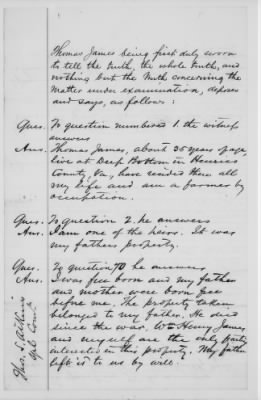 Thomas James being first duly sworn
to tell the truth, the whole truth, and
nothing but the truth concerning the
matter under examination, deposes
and says, as follows:
Ques. To question numbered 1. the witness
answers
Ans. Thomas James, about 35 years of age,
live at Deep Bottom in Henrico
County, Va., have resided there all
my life and am a farmer by
occupation.
Ques. To question 2. he answers
Ans. I am one of the heirs. It was
my fathers property.
Ques. To question 70 he answers
Ans. I was free born and my father
and mother were born free
before me. The property taken
belonged to my father. He died
since the war. Wm Henry James
and myself are the only party
interested in this property. My father
left it to us by will.
Jno. S.
Spl. Com'r